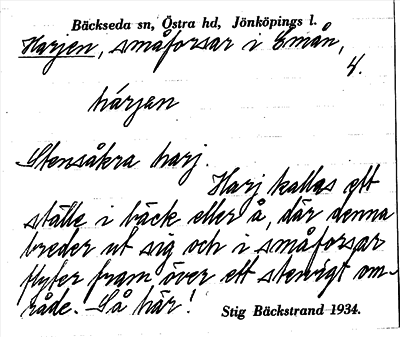 Bäckseda sn, Östra hd, Jönköpings l.
Harjen, småforsar i Emån,
4.
härjan
Stensåkra harj.
Harj kallas ett
ställe i bäck eller å, där denna
breder ut sig och i småforsar
flyter fram över ett stenigt om-
råde. Så här!
Stig Bäckstrand 1934.